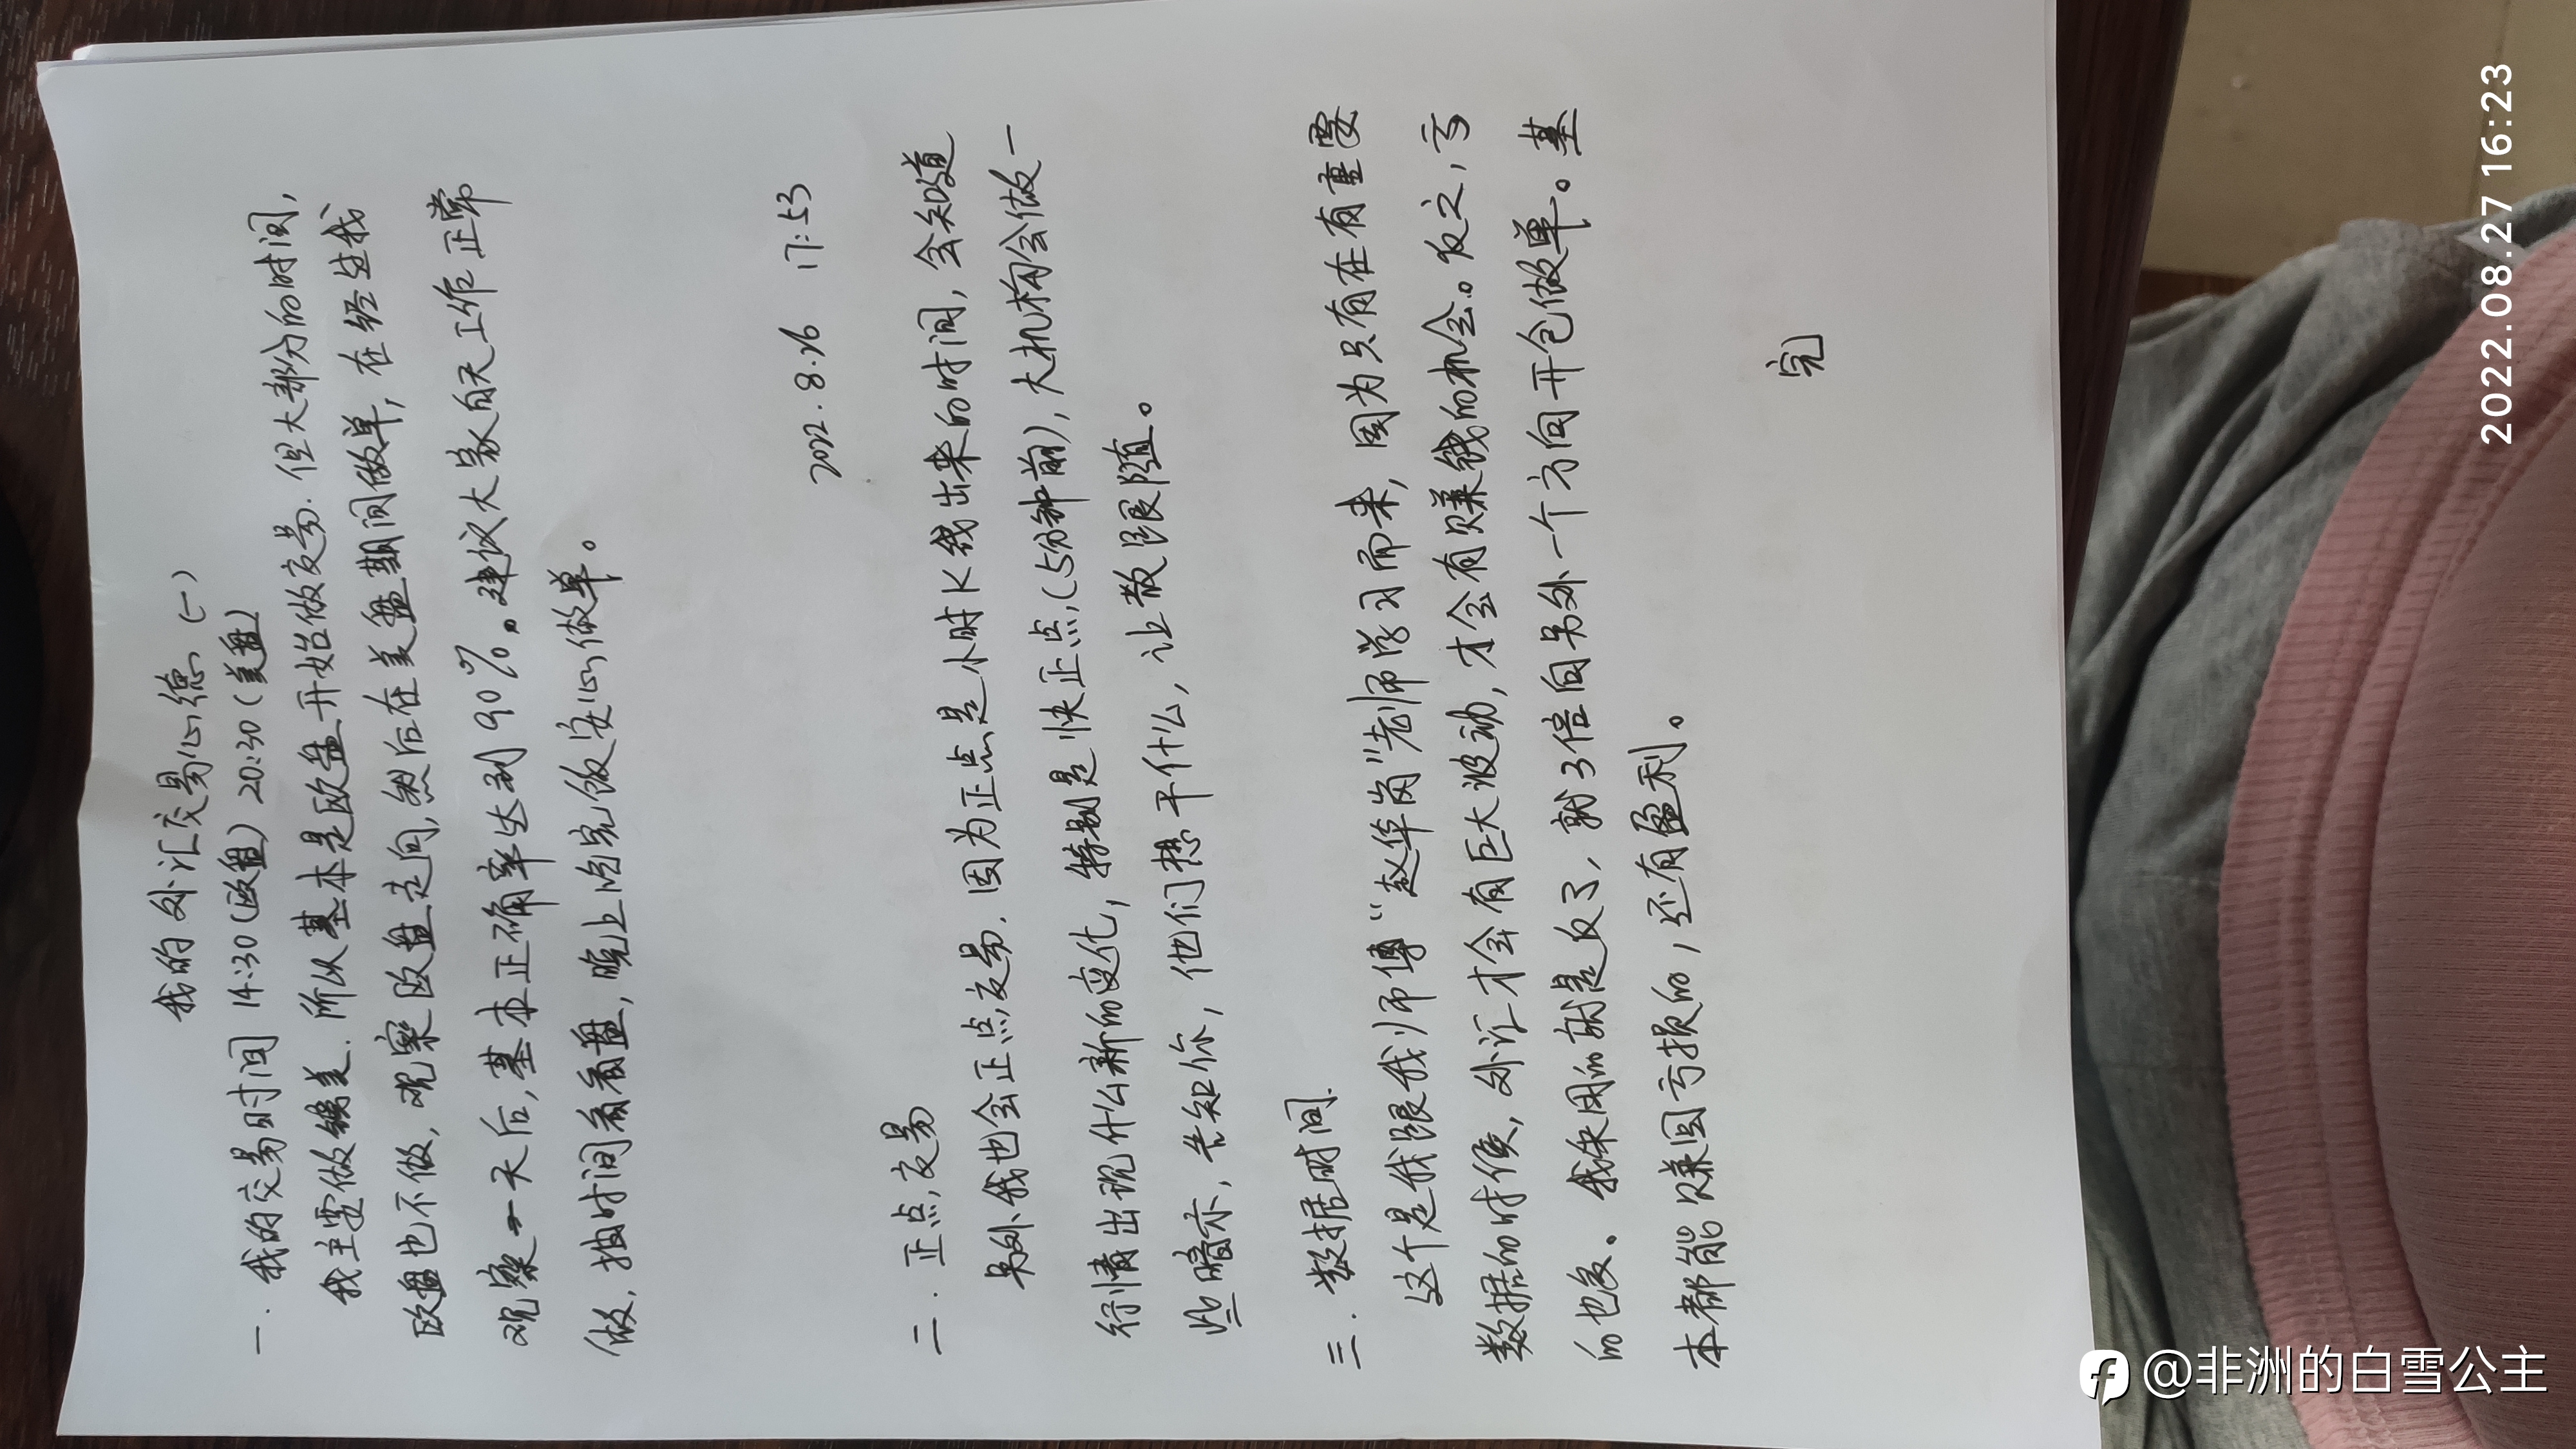 我的外汇交易心德(一)
一.我的交易时间 14:30(欧盘) 20:30(美盘)
我主要做镑美.所以基本是欧盘开始做交易.但大部分的时间,
欧盘也不做,观察欧盘走向,然后在美盘期间做单,在经过我
观察一天后,基本正确率达到90%。建议大家白天工作正常
做,抽时间看看盘,晚上吃完饭安心做单。
2022.8.26 17:53
二.正点交易
另外我也会正点交易.因为正点是小时K线出来的时间,会知道
行情出现什么新的变化,特别是快正点(5分钟前),大机构会做一
些暗示,告知你,他们想干什么,让散户跟随。
三.数据时间.
这个是我跟我师傅“赵华岗”老师学习而来,因为只有在有重要
数据的时候,外汇才会有巨大波动,才会有赚钱的机会。反之,亏
的也多。我采用的就是反了,就3倍向另外一个方向开仓做单。基
本都能赚回亏损的,还有盈利。
完
2022.08.27 16:23
@非洲的白雪公主